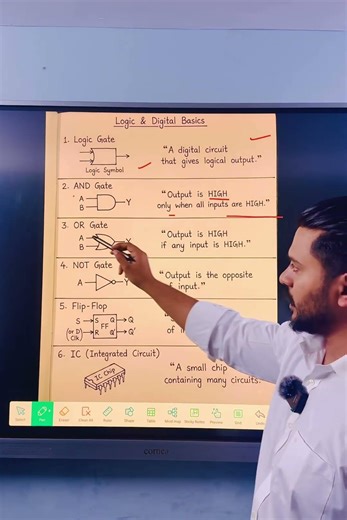 Logic & Digital Basics
1. Logic Gate
Logic Symbol
"A digital circuit
that gives logical output."
2. AND Gate
A
B
Y
"Output is HIGH
only when all inputs are HIGH."
3. OR Gate
A
B
Y
"Output is HIGH
if any input is HIGH."
4. NOT Gate
A
Y
"Output is the opposite
of input."
5. Flip-Flop
S
S Q
Q
FF
(or D)
R Q'
Q'
Clk)
of
6. IC (Integrated Circuit)
IC Chip
"A small chip
containing many circuits.
Select
Pen
Eraser
Clear All
Ruler
Shape
Table
Mind Map
Sticky Notes
Preview
Undo